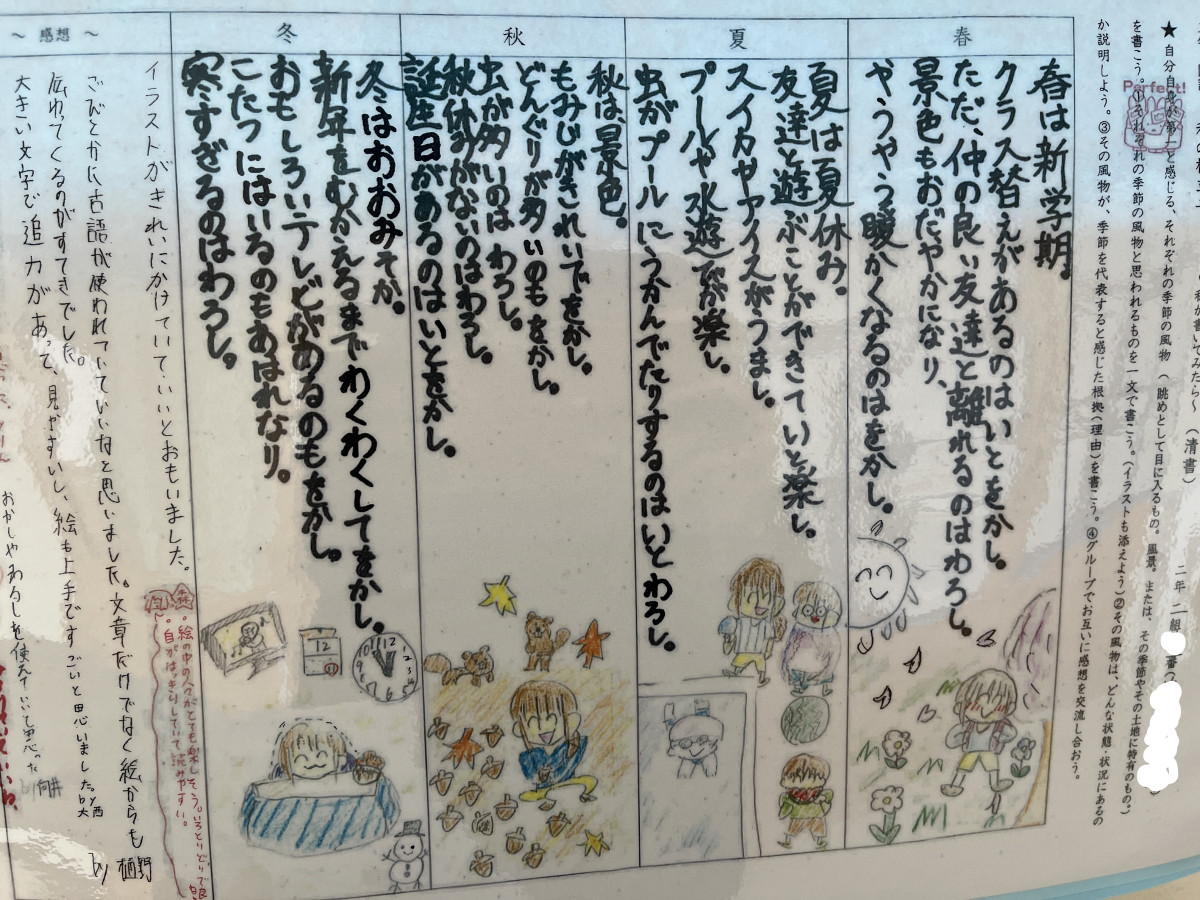 (清書)
二年 二組
★自分自身が第一と感じる、それぞれの季節の風物(眺めとして目に入るもの。風景。または、その季節やその土地に特有のもの。)
を書こう。①それぞれの季節の風物と思われるものを一文で書こう。(イラストも添えよう)②その風物は、どんな状態・状況にあるの
か説明しよう。③その風物が、季節を代表すると感じた根拠(理由)を書こう。④グループでお互いに感想を交流し合おう。
Perfect!
春
春は新学期。
クラス替えがあるのはいとをかし。
ただ、仲の良い友達と離れるのはわろし。
景色もおだやかになり、
やうやう暖かくなるのはをかし。
夏
夏は夏休み。
友達と遊ぶことができていと楽し。
スイカやアイスがうまし。
プールや水遊びが楽し。
虫がプールにうかんでたりするのはいとわろし。
秋
秋は、景色。
もみじがきれいでをかし。
どんぐりが多いのもをかし。
虫が多いのは わろし。
秋休みがないのはわろし。
誕生日があるのはいとをかし。
冬
冬はおおみそか。
新年をむかえるまでわくわくしてをかし。
おもしろいテレビがあるのもをかし。
こたつにはいるのもあはれなり。
寒すぎるのはわろし。
12
12
~ 感想 ~
イラストがきれいにかけていて、いいとおもいました。
。絵の中の人がとても楽しそう。いろとりどりで良
。字がはっきりしていて、読みやすい。
ところどころに古語が使われていていいなと思いました。文章だけでなく絵からも
伝わってくるのがすてきでした。
大きい文字で迫力があって、見やすいし、絵も上手ですごいと思いました。